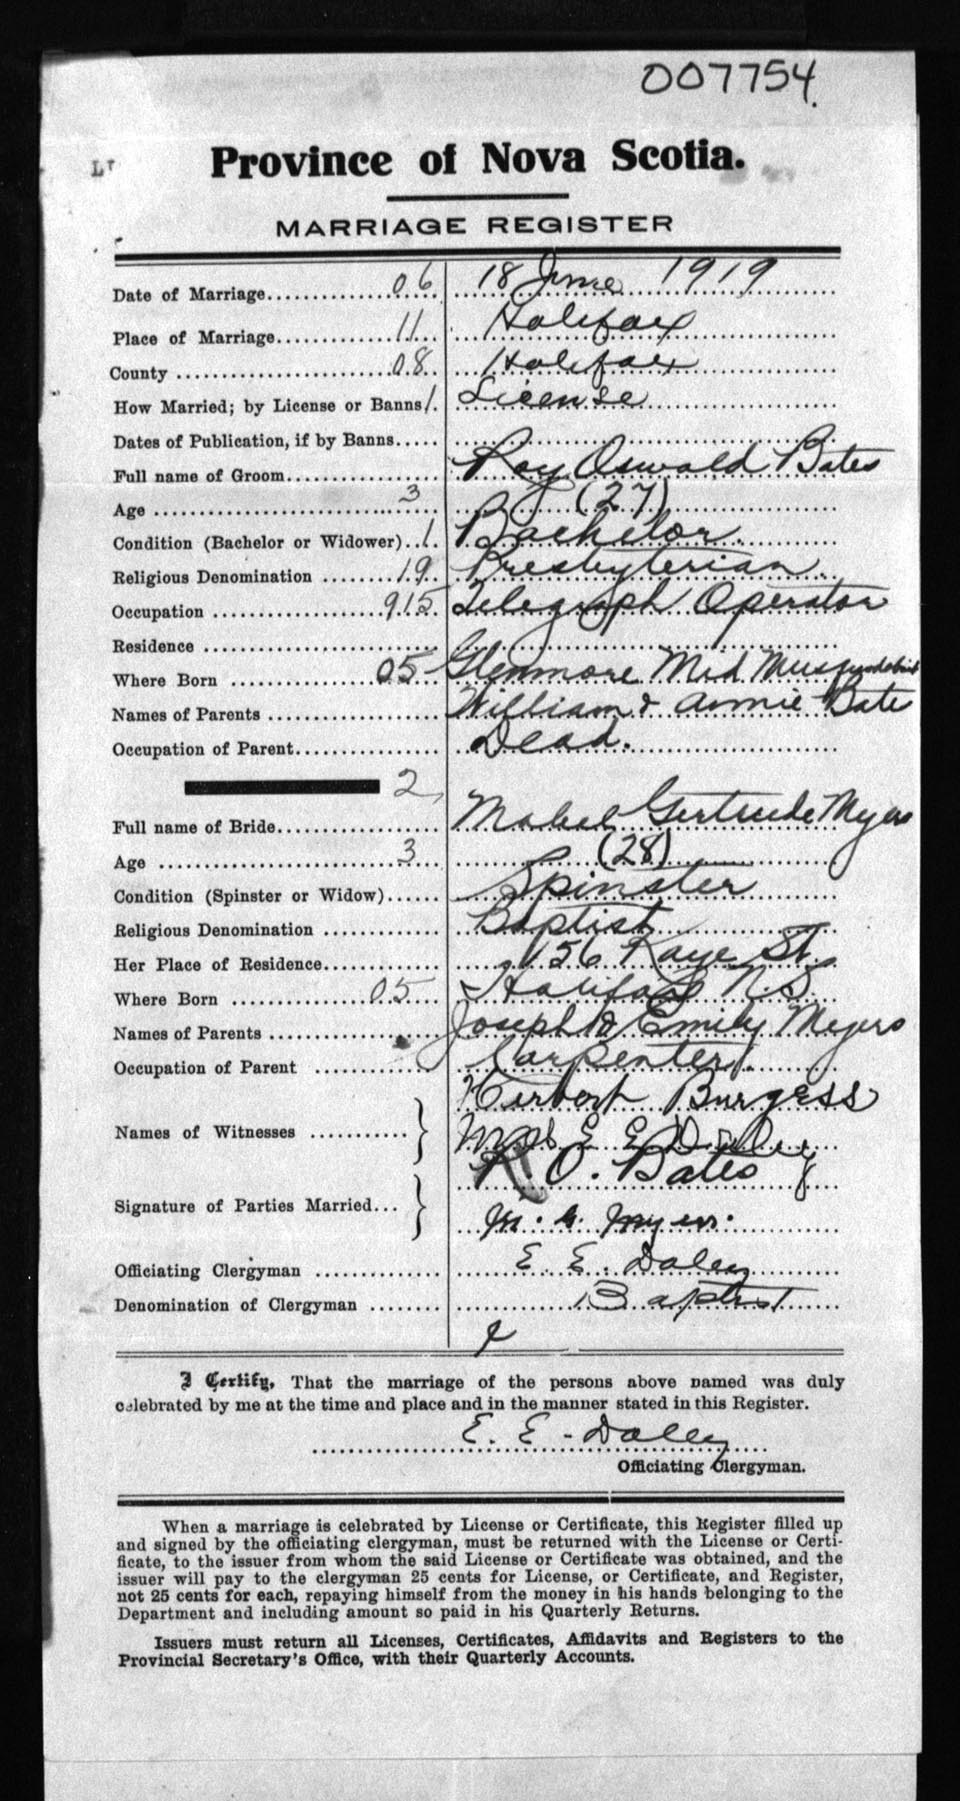 007754
Province of Nova Scotia.
MARRIAGE REGISTER
Date of Marriage 06 18 June 1919
Place of Marriage 11 Halifax
County 08 Halifax
How Married; by License or Banns 1. License
Dates of Publication, if by Banns
Full name of Groom Roy Oswald Bates
Age 3 (27)
Condition (Bachelor or Widower) 1. Bachelor.
Religious Denomination 19 Presbyterian
Occupation 915 Telegraph Operator
Residence
Where Born 05 Glenmore Mid Musquodoboit
Names of Parents William & Annie Bate
Occupation of Parent Dead.
2
Full name of Bride Mabel Gertrude Myers
Age 3 (28)
Condition (Spinster or Widow) Spinster
Religious Denomination Baptist
Her Place of Residence 156 Kaye St.
Where Born 05 Halifax N.S.
Names of Parents Joseph & Emily Meyers
Occupation of Parent Carpenter.
Names of Witnesses Herbert Burgess
Mrs E E Daley
Signature of Parties Married R. O. Bates
M. G. Myers.
Officiating Clergyman E. E. Daley
Denomination of Clergyman Baptist
I Certify, That the marriage of the persons above named was duly
celebrated by me at the time and place and in the manner stated in this Register.
E. E. Daley
Officiating Clergyman.
When a marriage is celebrated by License or Certificate, this Register filled up
and signed by the officiating clergyman, must be returned with the License or Certi-
ficate, to the issuer from whom the said License or Certificate was obtained, and the
issuer will pay to the clergyman 25 cents for License, or Certificate, and Register,
not 25 cents for each, repaying himself from the money in his hands belonging to the
Department and including amount so paid in his Quarterly Returns.
Issuers must return all Licenses, Certificates, Affidavits and Registers to the
Provincial Secretary's Office, with their Quarterly Accounts.